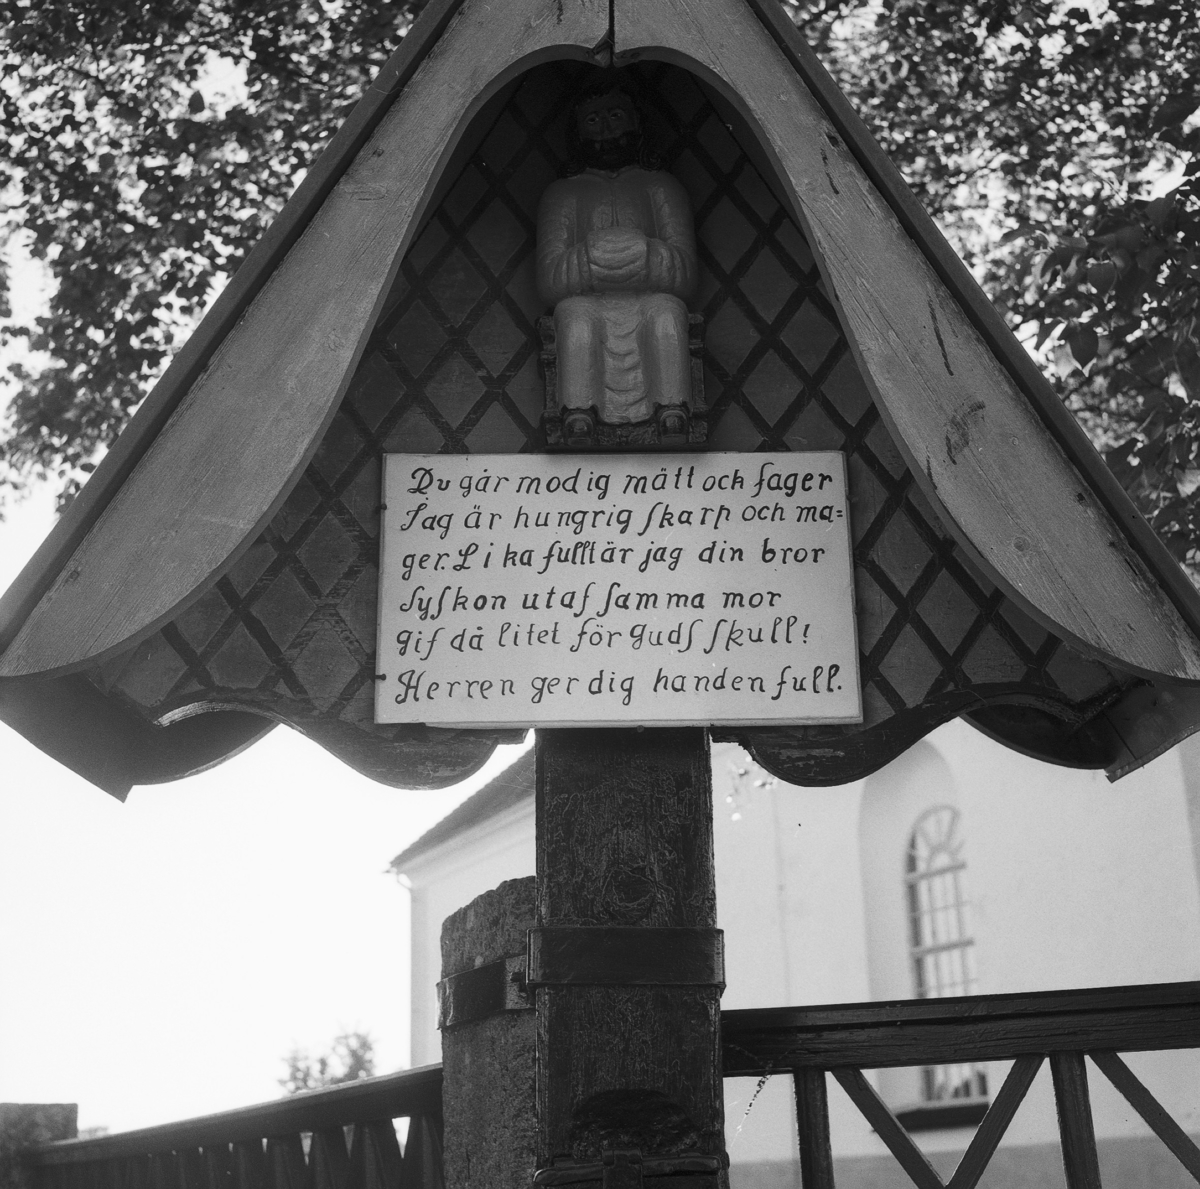 Du går modig mätt ock fager
Jag är hungrig ſkarp och ma=
ger. Li ka fulltär jag din bror
ſyſkon utaf ſamma mor
gif då litet för gudſ ſkull!
Herren ger dig handen full.